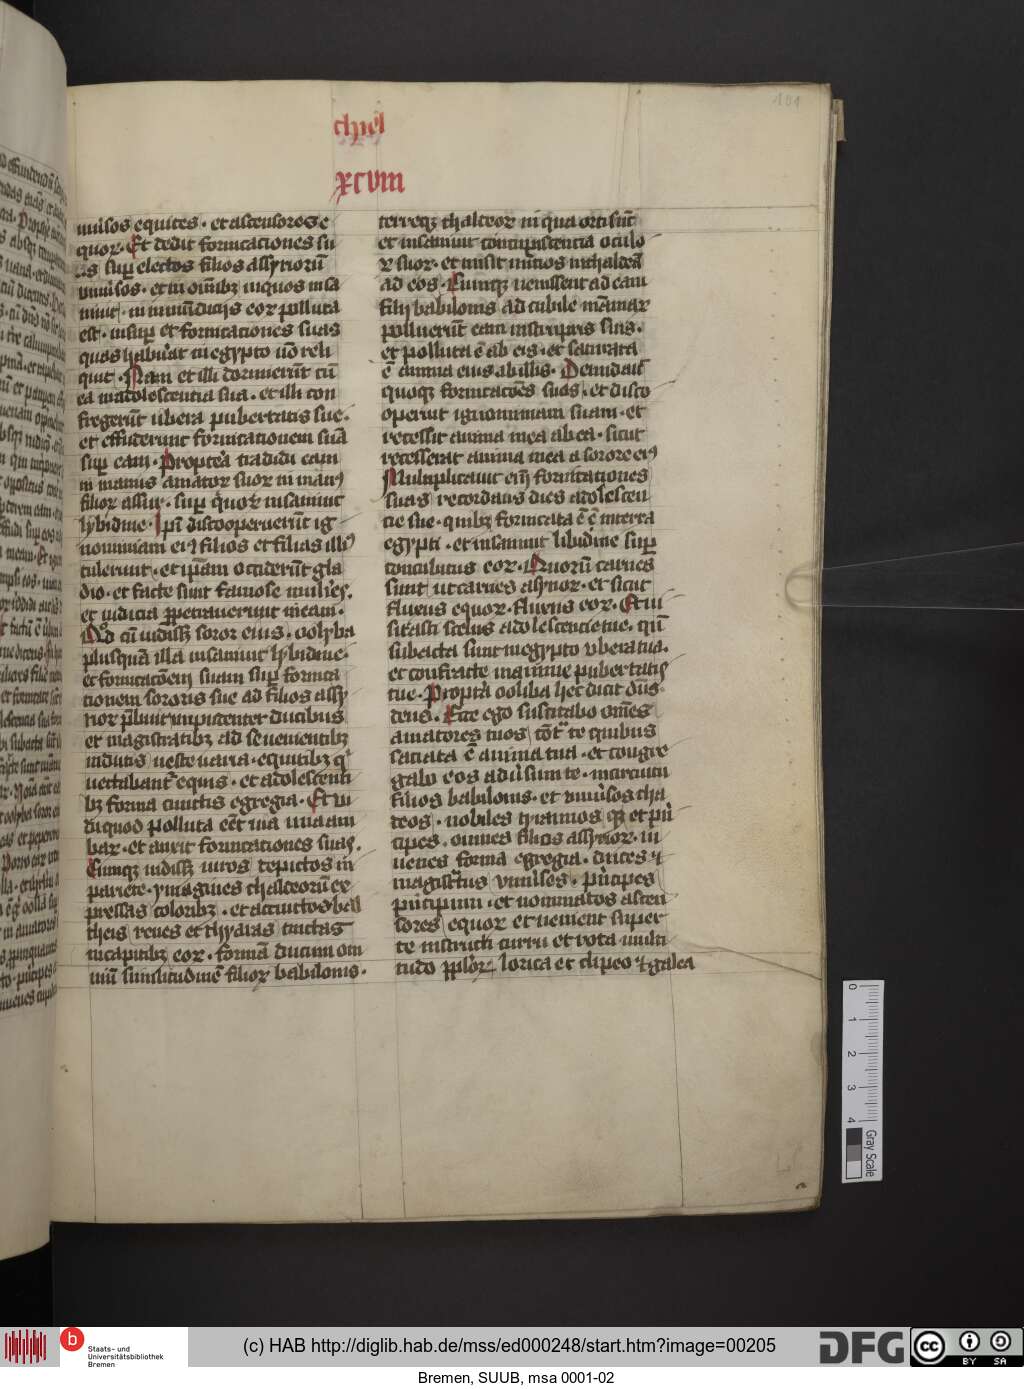 101
chiel
xcviii
uniu͛sos equites · et ascensores e
quor · Et dedit fornicationes su
as sup̱ electos filios assyriorū
uniu͛sos · et in om̄ibꝫ inquos insa
niuit · in inmūdicijs eoꝝ polluta
est · insup̱ et fornicationes suas
quas habuat in egypto nō reli
quit · Nam et illi dormierūt cū
ea in adolescentia sua · et illi con
fregerūt ubera pubertatis sue ·
et effuderunt fornicationem suā
sup̱ eam · Propterea tradidi eam
in manus amatoꝝ suoꝝ in manꝰ
filioꝝ assur · sup̱ quoꝝ insaniuit
lybidine · Ipsi discooperuerūt ig
nominiam eiꝰ filios et filias illiꝰ
tulerunt · et ip̄am occiderūt gla
dio · et facte sunt famose mulieres.
et iudicia ꝑpetrauerunt in eam ·
Qd̄ cū uidissꝫ soror eius · oolyba
plusquā illa insaniuit lybidine ·
et fornicatōem suam sup̱ fornica
tionem sororis sue ad filios assy
rioꝝ p̄buit inpudenter ducibus
et magistratibꝫ ad se uenientibꝫ
indutis ueste uaria · equitibꝫ q̄
uectabant᷑ equis · et adolescenti
bꝫ forma cunctis egregia · Et ui
di quod polluta eēt uia una am
baꝝ · et auxit fornicationes suas.
Cumqꝫ uidissꝫ uiros depictos in
pariete · ymagines chaldeorū ex
pressas coloribꝫ · et accinctos bal
theis renes et thyaras tinctas
in capitibꝫ eoꝝ · formā ducum om
niū similitudinē filioꝝ babilonis ·
terreqꝫ chaldeoꝝ in qua orti sūt
et insaniuit concupiscentia oculo
ꝝ suoꝝ · et misit nūcios in chaldeā
ad eos · Cumqꝫ uenissent ad eam
filij babilonis ad cubile māmaꝝ
polluerūt eam in stupris suis ·
et polluta ē ab eis · et saturata
ē anima eius ab illis · Denudauit
quoqꝫ fornicatōes suas · et disco
operuit ignominiam suam · et
recessit anima mea ab ea · sicut
recesserat anima mea a sorore eiꝰ
Multiplicauit em̄ fornicationes
suas recordans dies adolescen
tie sue · quibꝫ fornicata ē ē in terra
egypti · et insaniuit libidine sup̱
concubitus eoꝝ · Quorū carnes
sunt ut carnes asinoꝝ · et sicut
fluxus equoꝝ · fluxus eoꝝ · Et ui
sitasti scelus adolescencie tue · qn̄
subacta sunt in egypto ubera tua ·
et confracte mamme pubertatis
tue · Propt̄a ooliba hec dicit dn̄s
deus · Ecce ego suscitabo om̄es
amatores tuos cōt᷑ te quibus
saciata ē anima tua · et congre
gabo eos adu͛sum te · in circuitu
filios babilonis · et uniu͛sos chal
deos · nobiles tyrannos qꝫ et pⁱn
cipes · omnes filios assyrioꝝ · iu
uenes forma egregia · duces ⁊
magist᷑tus uniu͛sos · pⁱncipes
pⁱncipum · et nominatos ascen
sores equoꝝ et uenient super
te instructi curru et rota multi
tudo pp̄loꝝ lorica et clipeo ⁊ galea
0 1 2 3 4
Gray Scale
b
Staats- und
Universitätsbibliothek
Bremen
(c) HAB http://diglib.hab.de/mss/ed000248/start.htm?image=00205
DFG
cc BY SA
Bremen, SUUB, msa 0001-02